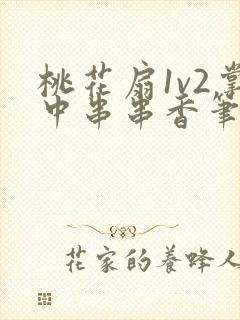 桃花扇1v2掌
中串串香笔
花家的養蜂人